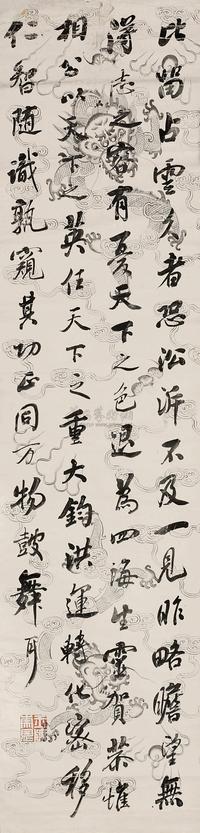 比留占雲久者恐沿泝不及一見昨略瞻望無
得志之容有憂天下之色退為四海生靈賀恭惟
相公以天下之英任天下之重大鈞洪運轉化密移
仁智隨識孰窺其功正同万物鼓舞耳